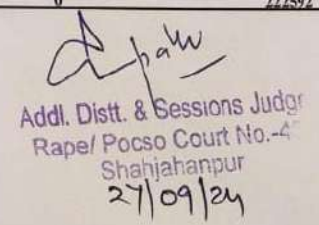 0
Addl. Distt. & Sessions Judge
Rape/ Pocso Court No.-4
Shahjahanpur
27/09/24